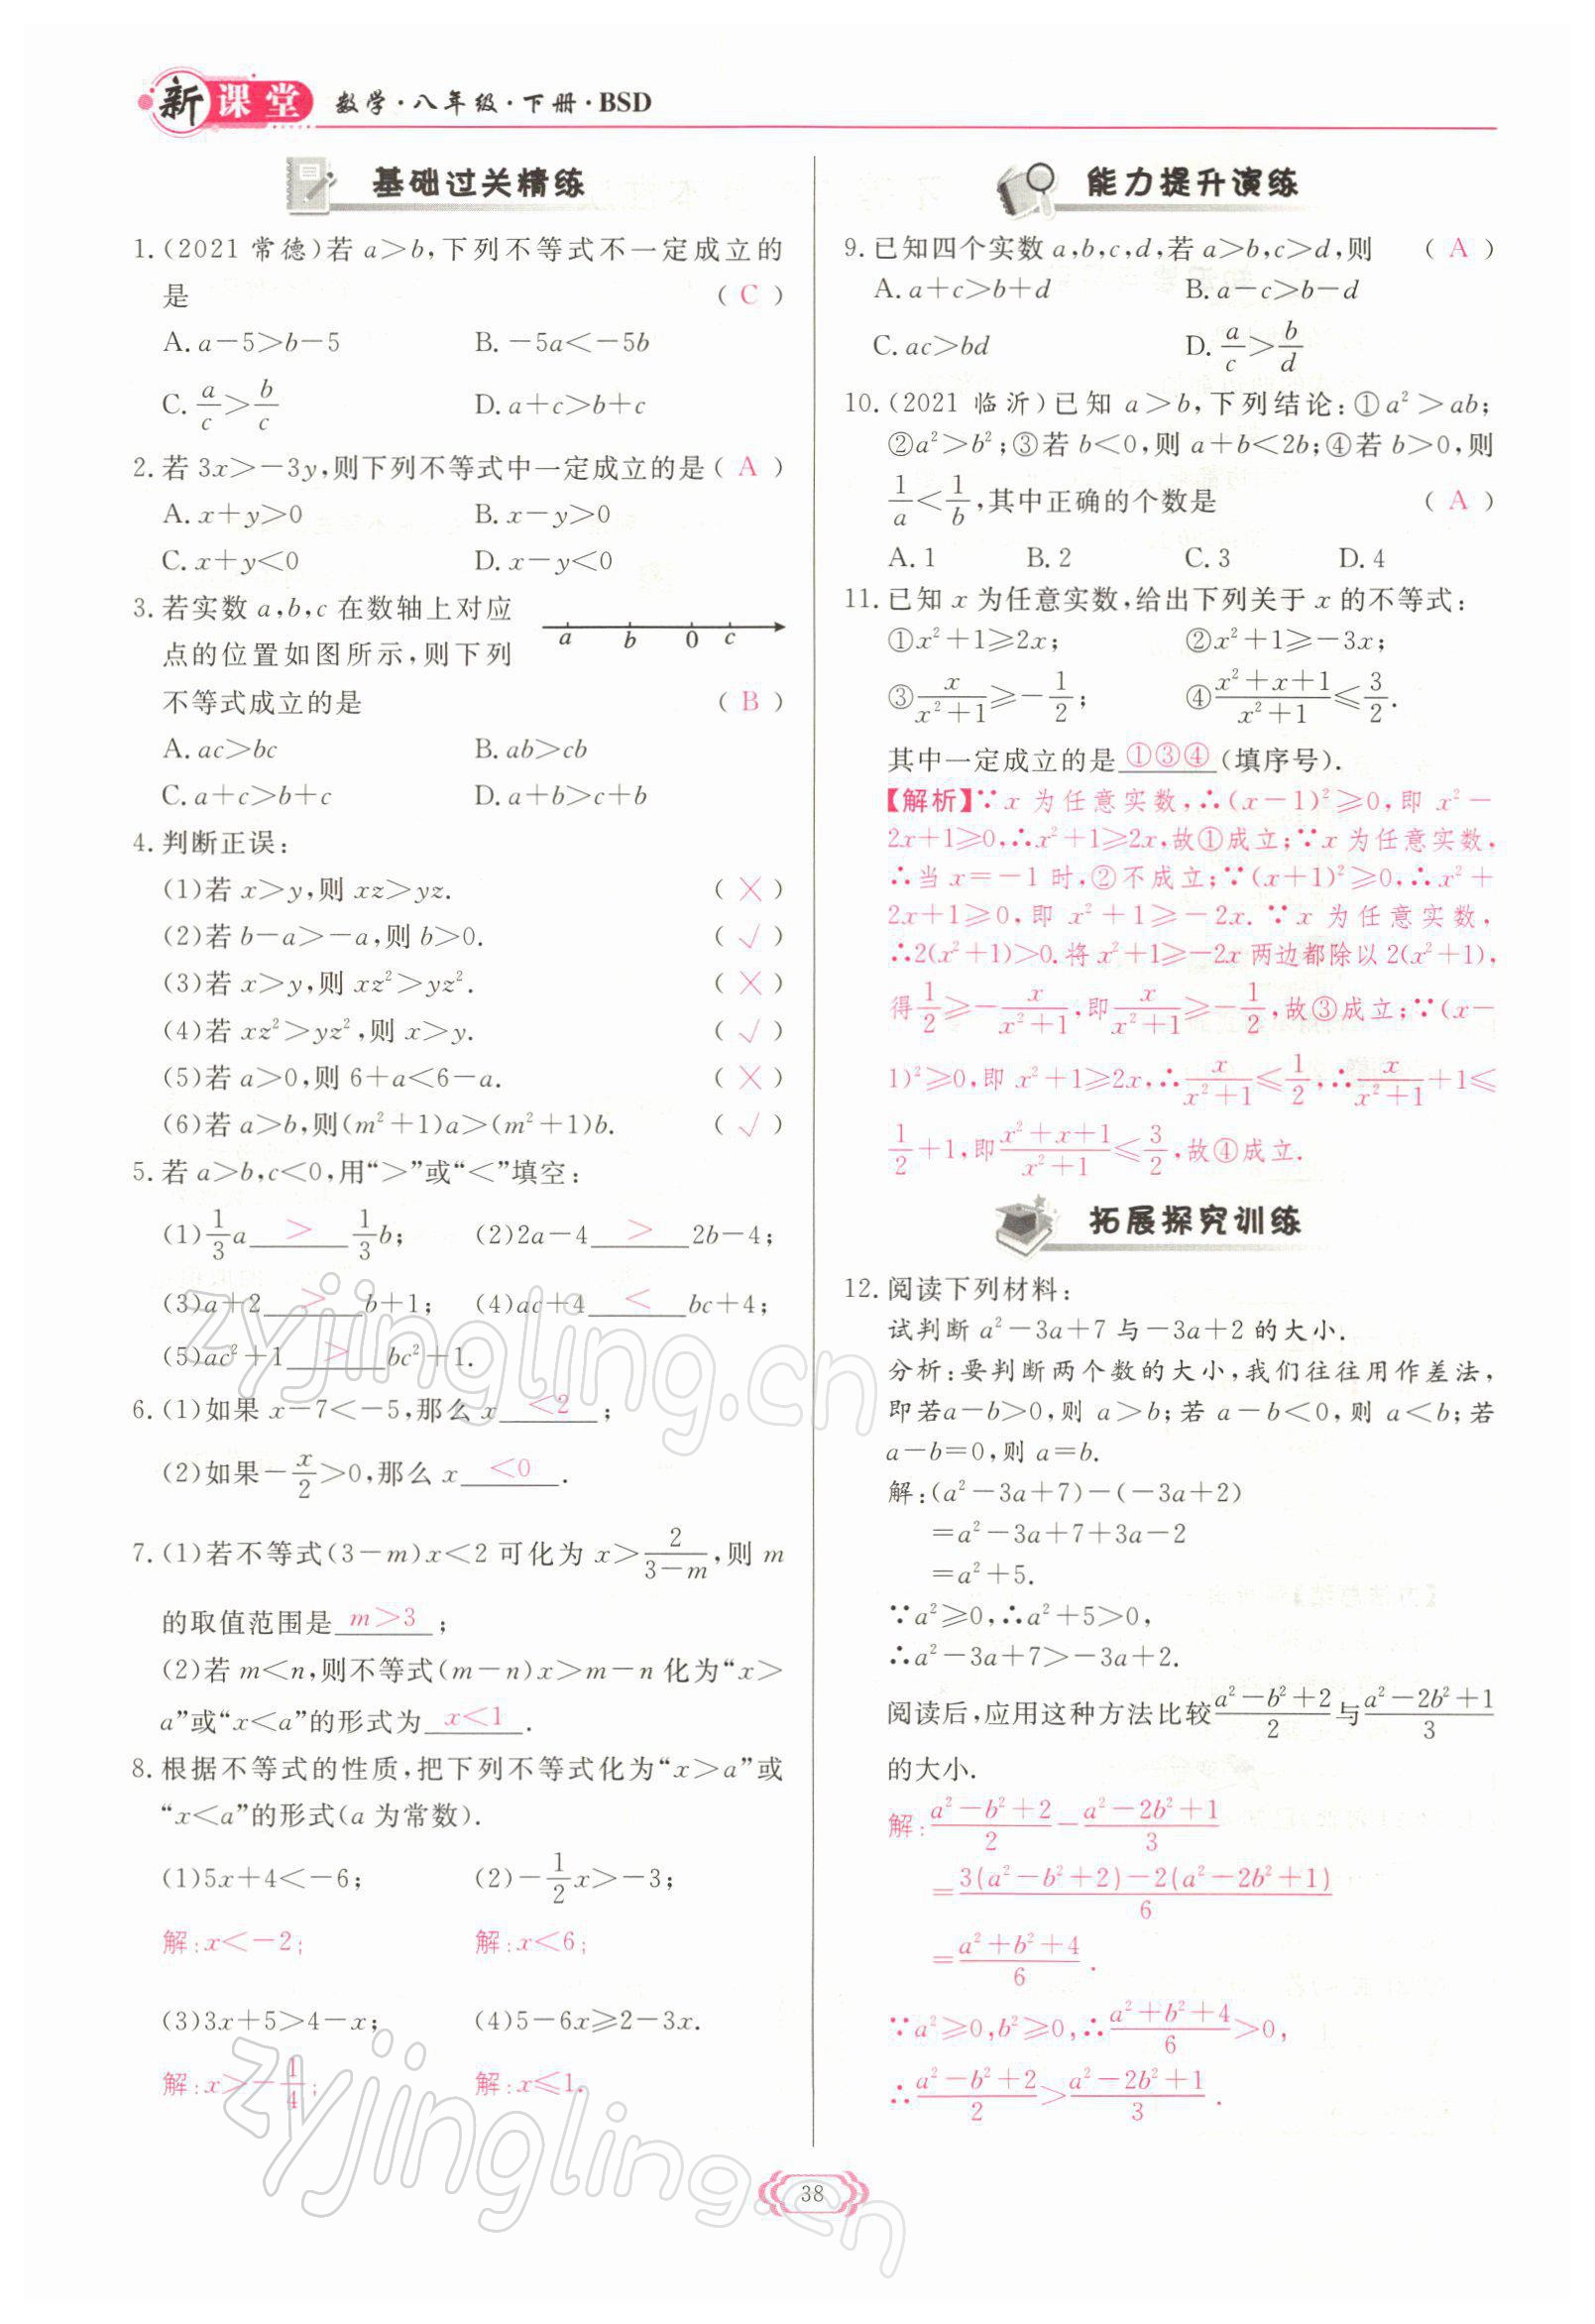 新课堂 数学·八年级·下册·BSD
基础过关精练
1.(2021 常德)若 a>b,下列不等式不一定成立的
是 ( C )
A. a-5>b-5 B. -5a<-5b
C. a/c>b/c D. a+c>b+c
2.若 3x>-3y,则下列不等式中一定成立的是( A )
A. x+y>0 B. x-y>0
C. x+y<0 D. x-y<0
3.若实数 a,b,c 在数轴上对应
点的位置如图所示,则下列
不等式成立的是 ( B )
a b 0 c
A. ac>bc B. ab>cb
C. a+c>b+c D. a+b>c+b
4.判断正误:
(1)若 x>y,则 xz>yz. ( × )
(2)若 b-a>-a,则 b>0. ( √ )
(3)若 x>y,则 xz²>yz². ( × )
(4)若 xz²>yz²,则 x>y. ( √ )
(5)若 a>0,则 6+a<6-a. ( × )
(6)若 a>b,则(m²+1)a>(m²+1)b. ( √ )
5.若 a>b,c<0,用“>”或“<”填空:
(1)1/3a > 1/3b; (2)2a-4 > 2b-4;
(3)a+2 > b+1; (4)ac+4 < bc+4;
(5)ac²+1 > bc²+1.
6.(1)如果 x-7<-5,那么 x <2 ;
(2)如果-x/2>0,那么 x <0 .
7.(1)若不等式(3-m)x<2 可化为 x>2/(3-m),则 m
的取值范围是 m>3 ;
(2)若 m<n,则不等式(m-n)x>m-n 化为“x>
a”或“x<a”的形式为 x<1 .
8.根据不等式的性质,把下列不等式化为“x>a”或
“x<a”的形式(a 为常数).
(1)5x+4<-6; (2)-1/2x>-3;
解:x<-2; 解:x<6;
(3)3x+5>4-x; (4)5-6x≥2-3x.
解:x>-1/4; 解:x≤1.
能力提升演练
9.已知四个实数 a,b,c,d,若 a>b,c>d,则 ( A )
A. a+c>b+d B. a-c>b-d
C. ac>bd D. a/c>b/d
10.(2021 临沂)已知 a>b,下列结论:①a²>ab;
②a²>b²;③若 b<0,则 a+b<2b;④若 b>0,则
1/a<1/b,其中正确的个数是 ( A )
A. 1 B. 2 C. 3 D. 4
11.已知 x 为任意实数,给出下列关于 x 的不等式:
①x²+1≥2x; ②x²+1≥-3x;
③x/(x²+1)≥-1/2; ④(x²+x+1)/(x²+1)≤3/2.
其中一定成立的是 ①③④ (填序号).
【解析】∵x 为任意实数,∴(x-1)²≥0,即 x²-
2x+1≥0,∴x²+1≥2x,故①成立;∵x 为任意实数,
∴当 x=-1 时,②不成立;∵(x+1)²≥0,∴x²+
2x+1≥0,即 x²+1≥-2x.∵x 为任意实数,
∴2(x²+1)>0.将 x²+1≥-2x 两边都除以 2(x²+1),
得1/2≥-x/(x²+1),即x/(x²+1)≥-1/2,故③成立;∵(x-
1)²≥0,即 x²+1≥2x,∴x/(x²+1)≤1/2,∴x/(x²+1)+1≤
1/2+1,即(x²+x+1)/(x²+1)≤3/2,故④成立.
拓展探究训练
12.阅读下列材料:
试判断 a²-3a+7 与-3a+2 的大小.
分析:要判断两个数的大小,我们往往用作差法,
即若a-b>0,则 a>b;若 a-b<0,则 a<b;若
a-b=0,则 a=b.
解:(a²-3a+7)-(-3a+2)
=a²-3a+7+3a-2
=a²+5.
∵a²≥0,∴a²+5>0,
∴a²-3a+7>-3a+2.
阅读后,应用这种方法比较(a²-b²+2)/2与(a²-2b²+1)/3
的大小.
解:(a²-b²+2)/2-(a²-2b²+1)/3
=(3(a²-b²+2)-2(a²-2b²+1))/6
=(a²+b²+4)/6.
∵a²≥0,b²≥0,∴(a²+b²+4)/6>0,
∴(a²-b²+2)/2>(a²-2b²+1)/3.
38
zyjingling.cn
zyjingling.cn